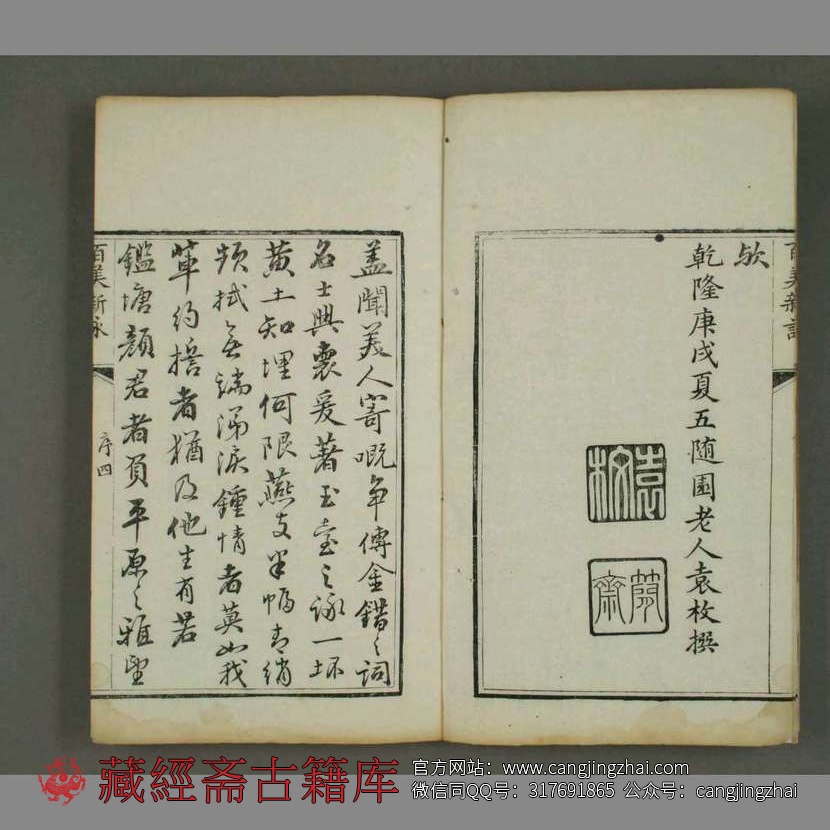 百美新詠
歟
乾隆庚戌夏五随園老人袁枚撰
袁枚
簡齋
蓋聞美人寄嘅爭傳金錯之詞
名士興懷爰著玉臺之詠一坏
黄土知埋何限燕支半幅青綃
頻拭無端涕淚鍾情者莫如我
輩約指者猶及他生有若
鑑塘顏君者負平原之雅望
百美新詠
序四
藏經斋古籍库
官方网站：www.cangjingzhai.com
微信同QQ号：317691865 公众号：cangjingzhai